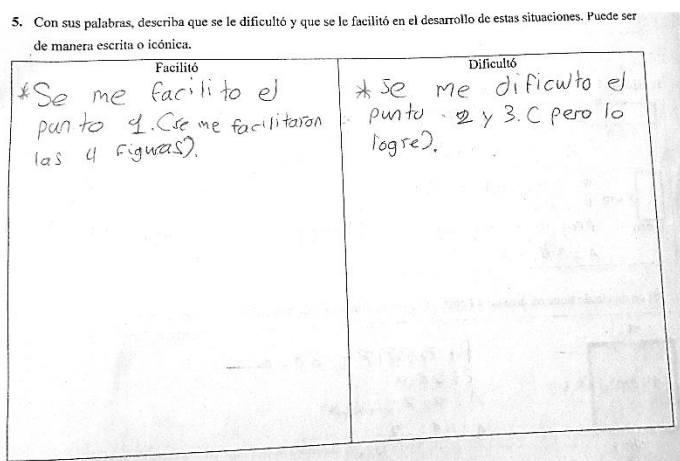 5. Con sus palabras, describa que se le dificultó y que se le facilitó en el desarrollo de estas situaciones. Puede ser
de manera escrita o icónica.
Facilitó
*Se me facilito el
punto 1. (se me facilitaron
las 4 figuras).
Dificultó
* se me dificulto el
punto 2 y 3. ( pero lo
logre).